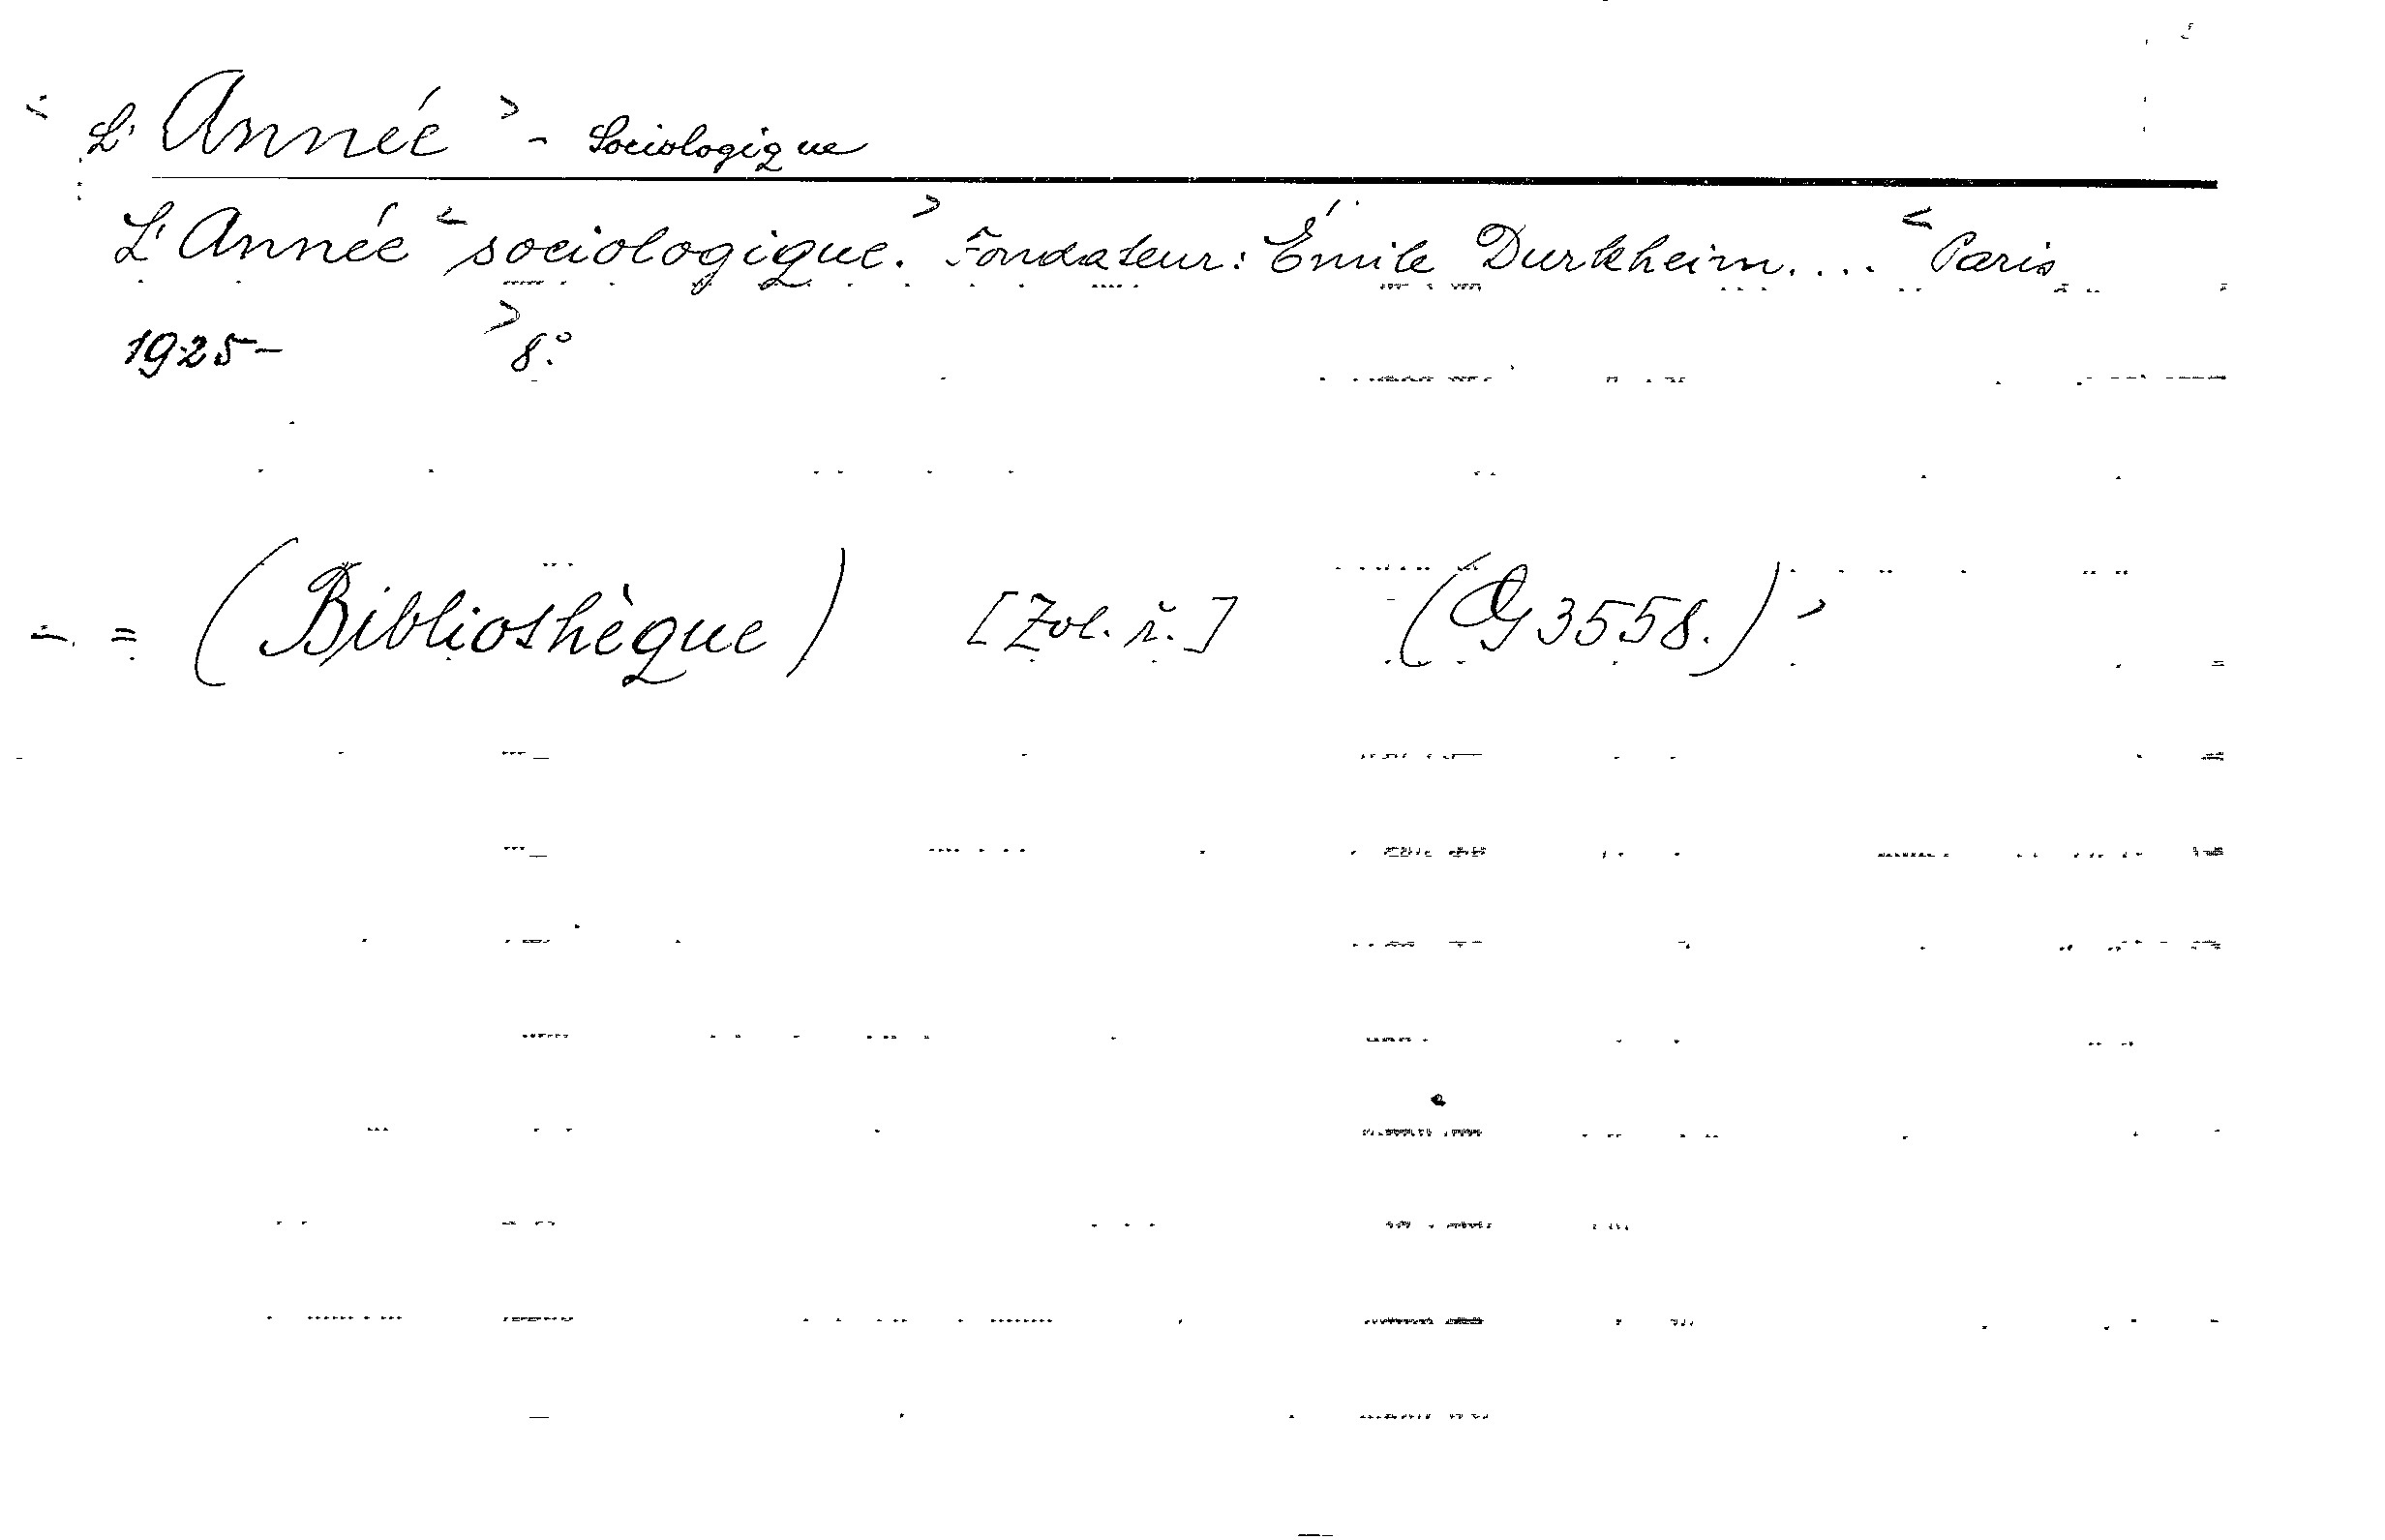 < L' Année > - Sociologique
L' Année < sociologique. > Fondateur: Émile Durkheim.... < Paris
1925- > 8°.
- . = (Bibliothèque) [Zvl. ř.] (G 3558.) >